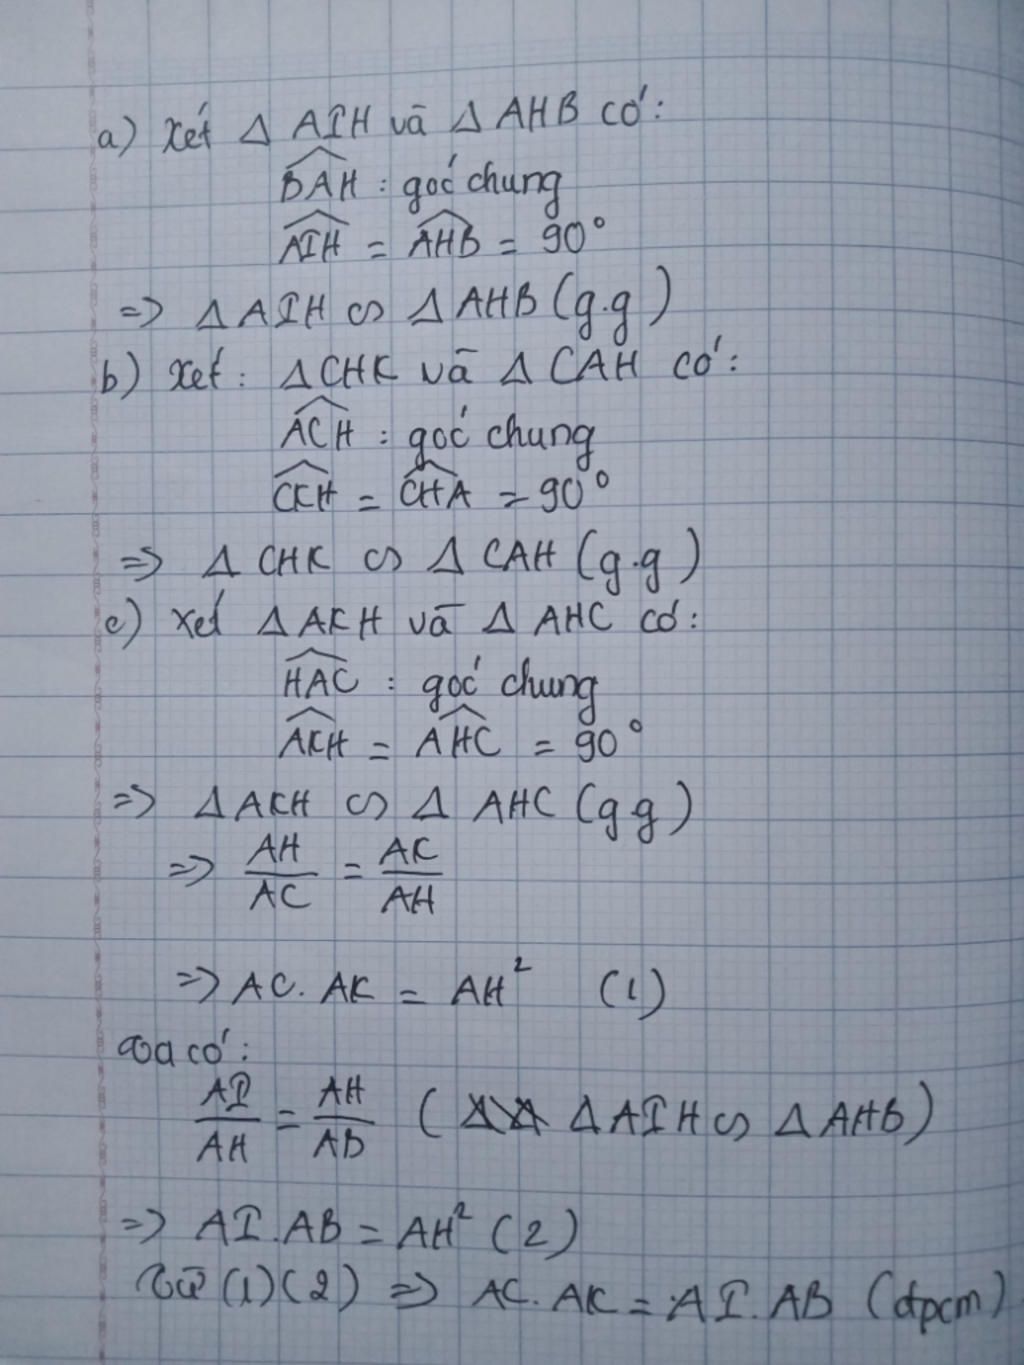 a) Xét Δ AIH và Δ AHB có:
$\widehat{BAH}$ : góc chung
$\widehat{AIH}$ = $\widehat{AHB}$ = 90°
=> Δ AIH ∽ Δ AHB (g.g)
b) Xét: Δ CHK và Δ CAH có:
$\widehat{ACH}$ : góc chung
$\widehat{CKH}$ = $\widehat{CHA}$ = 90°
=> Δ CHK ∽ Δ CAH (g.g)
c) Xét Δ AKH và Δ AHC có:
$\widehat{HAC}$ : góc chung
$\widehat{AKH}$ = $\widehat{AHC}$ = 90°
=> Δ AKH ∽ Δ AHC (g g)
=> $\frac{AH}{AC}$ = $\frac{AK}{AH}$
=> AC. AK = AH² (1)
Ta có:
$\frac{AI}{AH}$ = $\frac{AH}{AB}$ ( Δ AIH ∽ Δ AHB)
=> AI. AB = AH² (2)
Từ (1) (2) => AC. AK = AI. AB (đpcm)